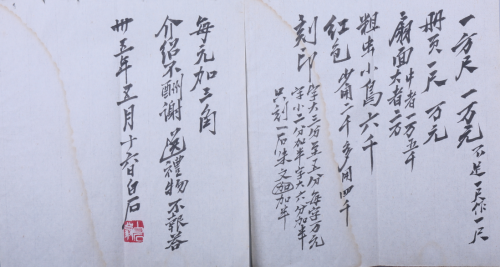 一方尺一万元不足一尺作一尺
册頁一尺万元
扇面中者一万五千
大者二万
粗虫小鳥六千
红色少用二千多用四千
刻印
字大三分至五分每字万元
字小二分加半字大六分加半
只刻一石朱文加半
每元加二角
介绍不酬谢送禮物不報荅
卅五年五月十六日白石